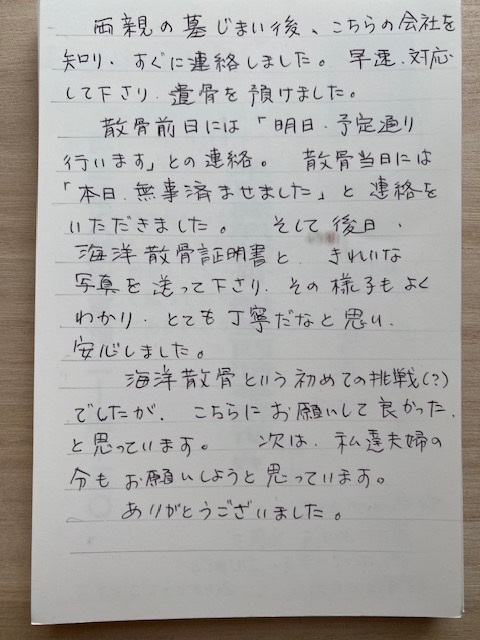 両親の墓じまい後、こちらの会社を
知り、すぐに連絡しました。早速、対応
して下さり、遺骨を預けました。
散骨前日には「明日、予定通り
行います」との連絡。散骨当日には
「本日、無事済ませました」と連絡を
いただきました。そして後日、
海洋散骨証明書と、きれいな
写真を送って下さり、その様子もよく
わかり、とても丁寧だなと思い、
安心しました。
海洋散骨という初めての挑戦(?)
でしたが、こちらにお願いして良かった、
と思っています。次は、私達夫婦の
分もお願いしようと思っています。
ありがとうございました。